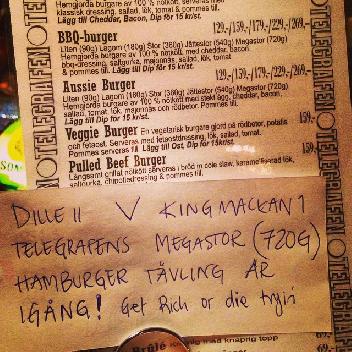 Hemgjorda burgare av 100 % nötkött, serveras med
klassisk dressing, sallad, lök, tomat & pommes till.
Lägg till Cheddar, Bacon, Dip för 15 kr/st.
129.-/159.-/179.-/229.-/269.-
BBQ-burger
Liten (90g) Lagom (180g) Stor (360g) Jättestor (540g) Megastor (720g)
Hemgjorda burgare av 100 % nötkött, med cheddar, bacon,
bbq-dressing, saltgurka, majonnäs, sallad, tomat, lök
& pommes till. Lägg till Dip för 15 kr/st.
129.-/159.-/179.-/229.-/269.-
Aussie Burger
Liten (90g) Lagom (180g) Stor (360g) Jättestor (540g) Megastor (720g)
Hemgjorda burgare av 100 % nötkött med stekt ägg, cheddar, bacon,
sallad, tomat, lök, majonnäs och rödbetor. Pommes till.
Lägg till Dip för 15 kr/st.
159.-
Veggie Burger En vegetarisk burgare gjord på rödbetor, potatis
och fetaost. Serveras med fetaostdressing, lök, sallad, tomat.
Pommes serveras till. Lägg till Ost, Dip för 15kr/st.
159.-
Pulled Beef Burger
Långsamt grillat nötkött serveras i bröd m cole slaw, karamelliserad lök,
saltgurka, chipotledressing & pommes till.
TELEGRAFEN
TELEGRAFEN
DILLE 11 V KINGMACKAN 1
TELEGRAFENS MEGASTOR (720G)
HAMBURGER TÄVLING ÄR
IGÅNG! Get Rich or die tryin'
Brûlé
knaprig topp
69.-